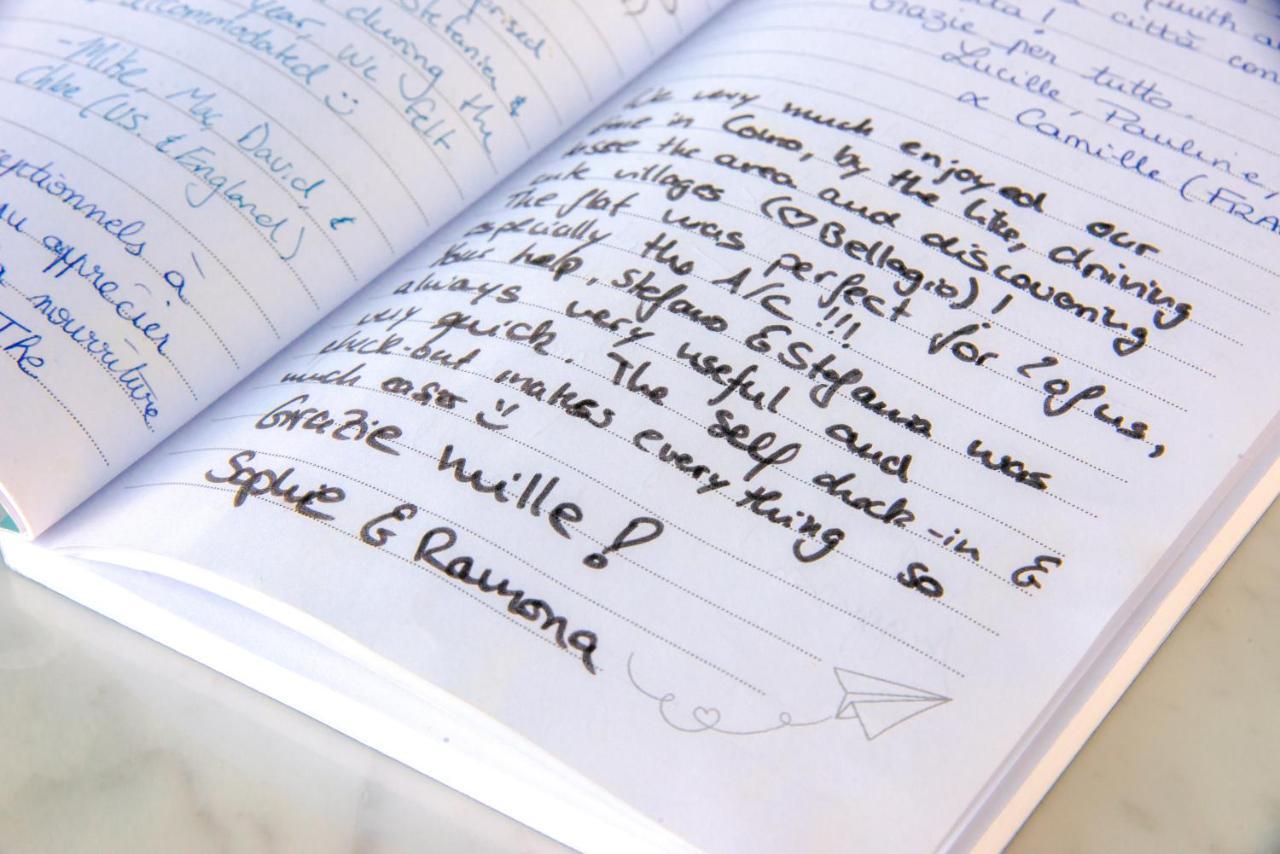 prised
Stefania &
during the
year, we felt
accommodated :)
-Mike, Mac, David, &
Chloe (US. & England)
à
apprécier
nourriture
The
città con
Grazie per tutto.
Lucille, Pauline,
& Camille (FRA
very much enjoyed our
time in Como, by the like, driving
the area and discovering
villages (♡Bellagio)!
The flat was perfect for 2 of us,
especially the A/C !!!
Your help, Stefano & Stefania was
always very useful and
very quick. The self check-in &
check-out makes everything so
much easier :)
Grazie mille!
Sophie & Ramona